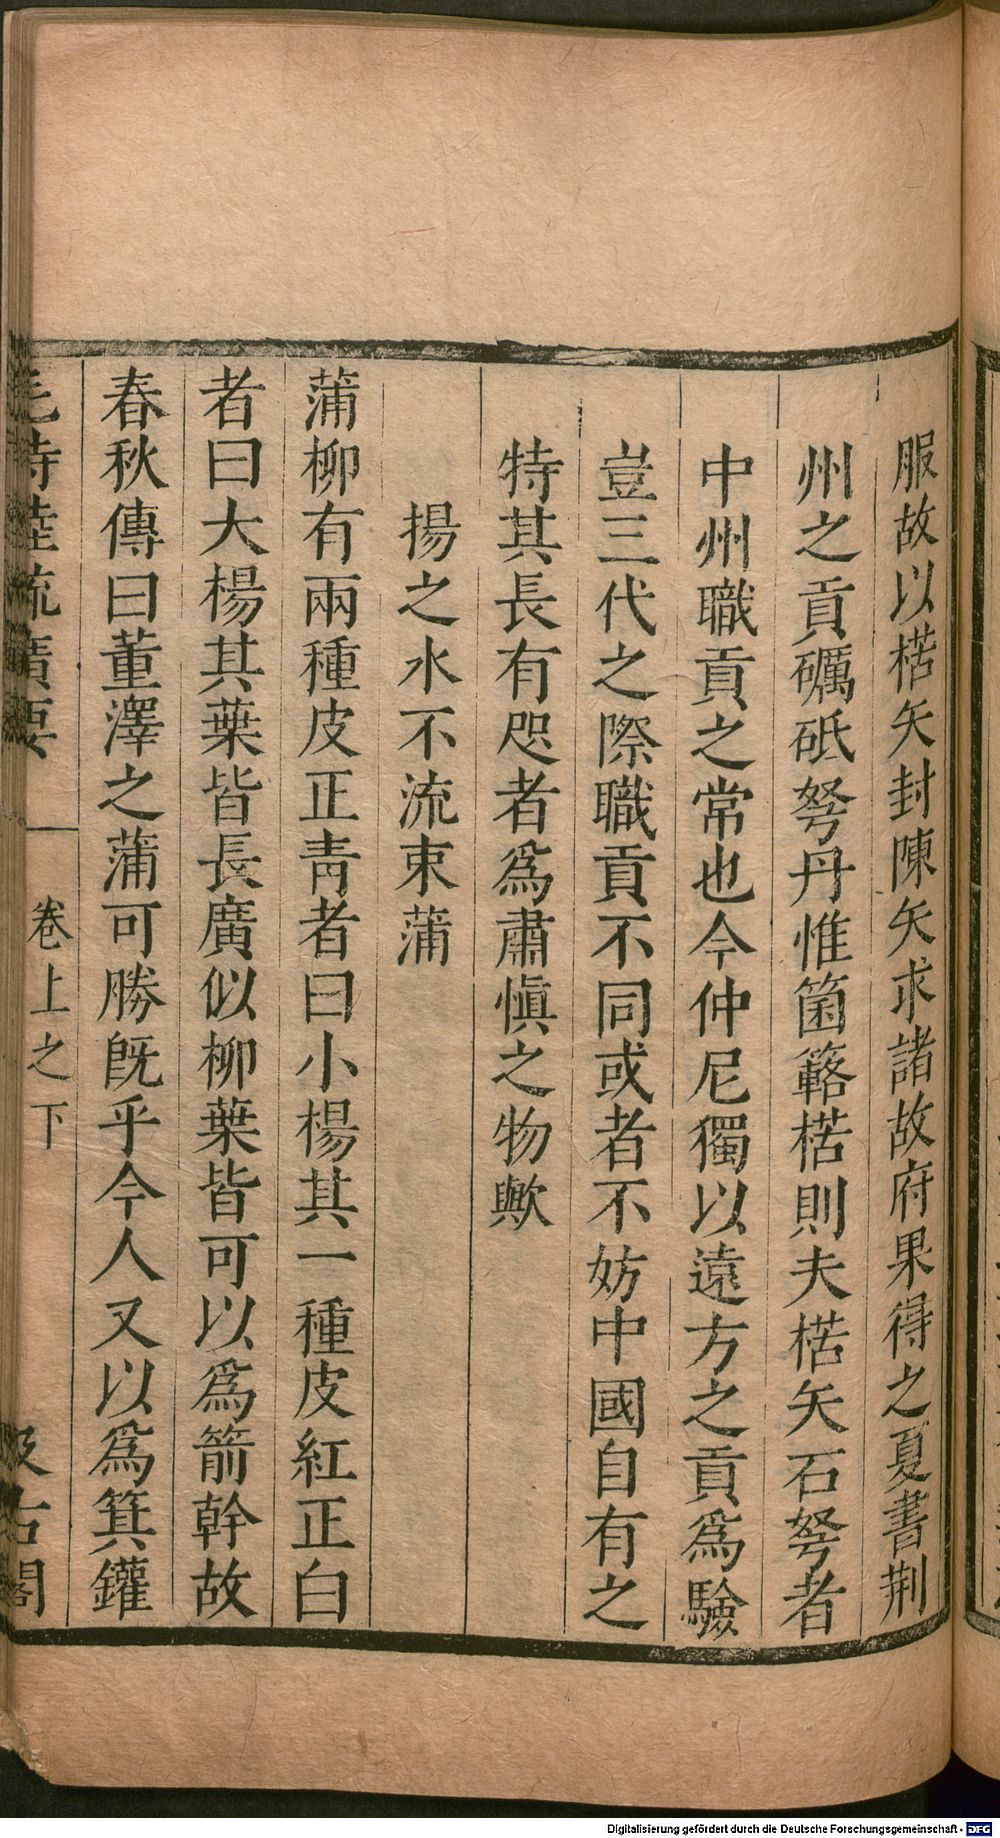 服故以楛矢封陳矢求諸故府果得之夏書荆
州之貢礪砥砮丹惟箘簵楛則夫楛矢石砮者
中州職貢之常也今仲尼獨以遠方之貢爲驗
豈三代之際職貢不同或者不妨中國自有之
特其長有咫者爲肅愼之物歟
揚之水不流束蒲
蒲柳有兩種皮正青者曰小楊其一種皮紅正白
者曰大楊其葉皆長廣似柳葉皆可以爲箭幹故
春秋傳曰董澤之蒲可勝旣乎今人又以爲箕鑵
毛詩陸疏廣要 卷上之下 汲古閣
Digitalisierung gefördert durch die Deutsche Forschungsgemeinschaft - DFG